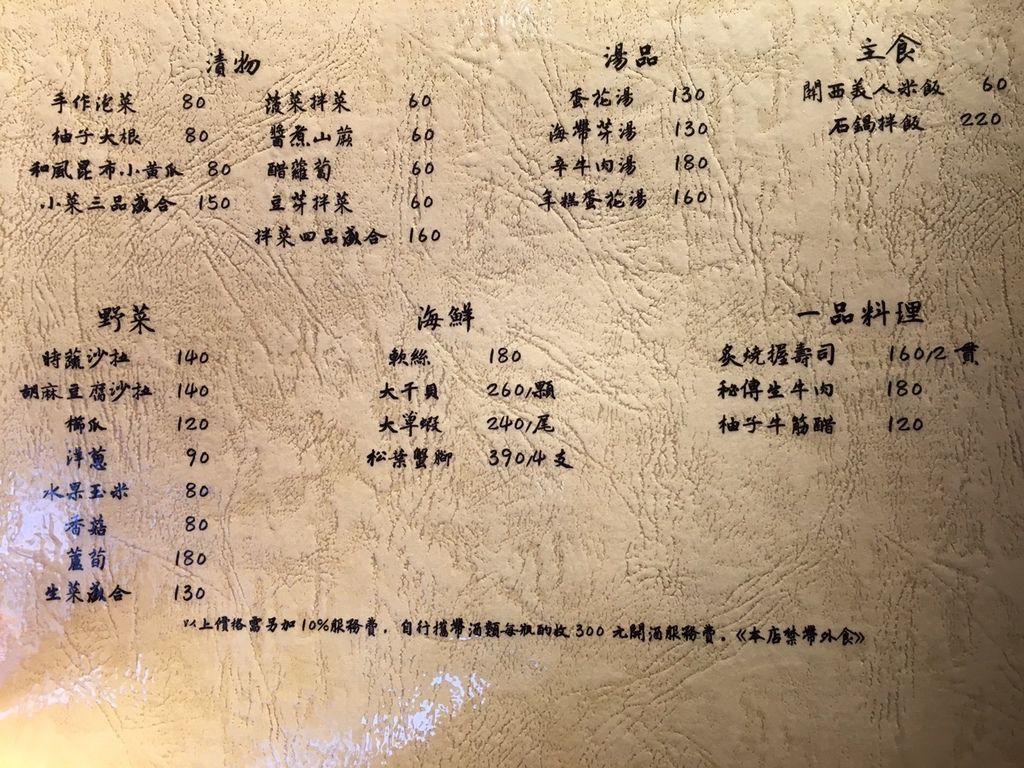 漬物
手作泡菜 80
柚子大根 80
和風昆布小黃瓜 80
小菜三品盛合 150
菠菜拌菜 60
醬煮山蕨 60
醋蘿蔔 60
豆芽拌菜 60
拌菜四品盛合 160
湯品
蛋花湯 130
海帶芽湯 130
辛牛肉湯 180
年糕蛋花湯 160
主食
關西美人米飯 60
石鍋拌飯 220
野菜
時蔬沙拉 140
胡麻豆腐沙拉 140
櫛瓜 120
洋蔥 90
水果玉米 80
香菇 80
蘆筍 180
生菜盛合 130
海鮮
軟絲 180
大干貝 260/顆
大草蝦 240/尾
松葉蟹腳 390/4支
一品料理
炙燒握壽司 160/2貫
秘傳生牛肉 180
柚子牛筋醋 120
以上價格需另加10%服務費，自行攜帶酒類每瓶酌收300元開酒服務費。《本店禁帶外食》